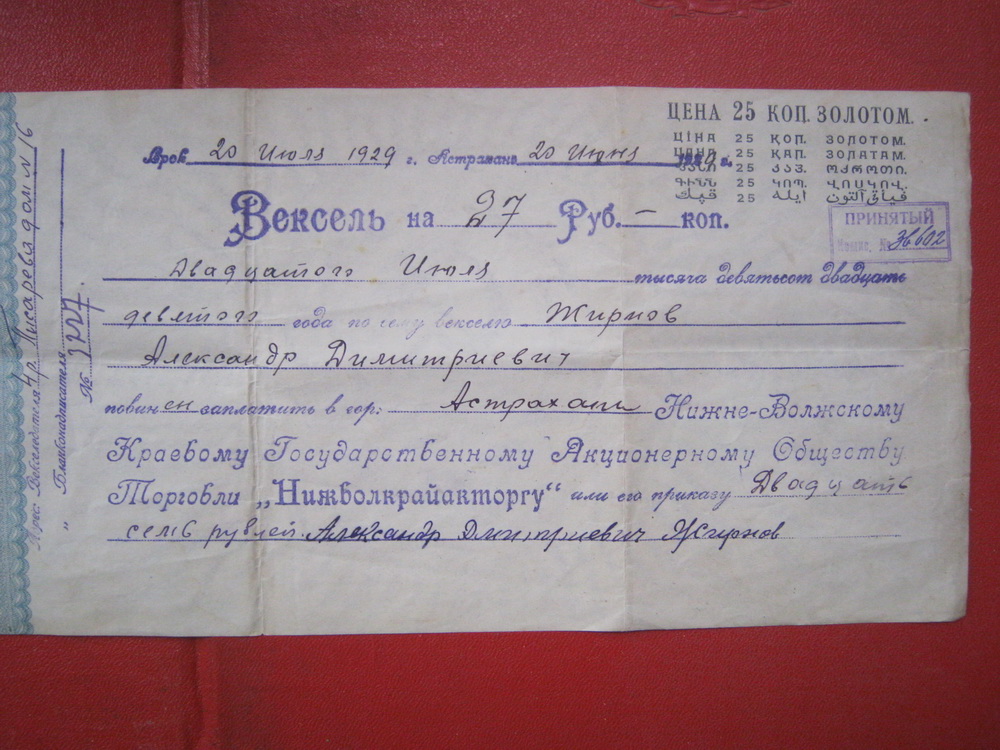 ЦЕНА 25 КОП. ЗОЛОТОМ.
ЦІНА 25 КОП. ЗОЛОТОМ.
ЦАНА 25 КАП. ЗОЛАТАМ.
25 ՙԿՈՊ. ՎՈՍԿՈՎ.
Срок 20 Июля 1929 г. Астрахань 20 Июня
Вексель на 27 Руб. – коп.
ПРИНЯТЫЙ
№ 36602
Двадцатого Июля тысяча девятьсот двадцать
девятого года по сему векселю Жирнов
Александр Димитриевич
повинен заплатить в гор: Астрахани Нижне-Волжскому
Краевому Государственному Акционерному Обществу
Торговли „Нижволкрайакторгу“ или его приказу Двадцать
семь рублей Александр Дмитриевич Жирнов
Адрес Векселедателя Писарева дом № 16
„ Бланконадписателя
№